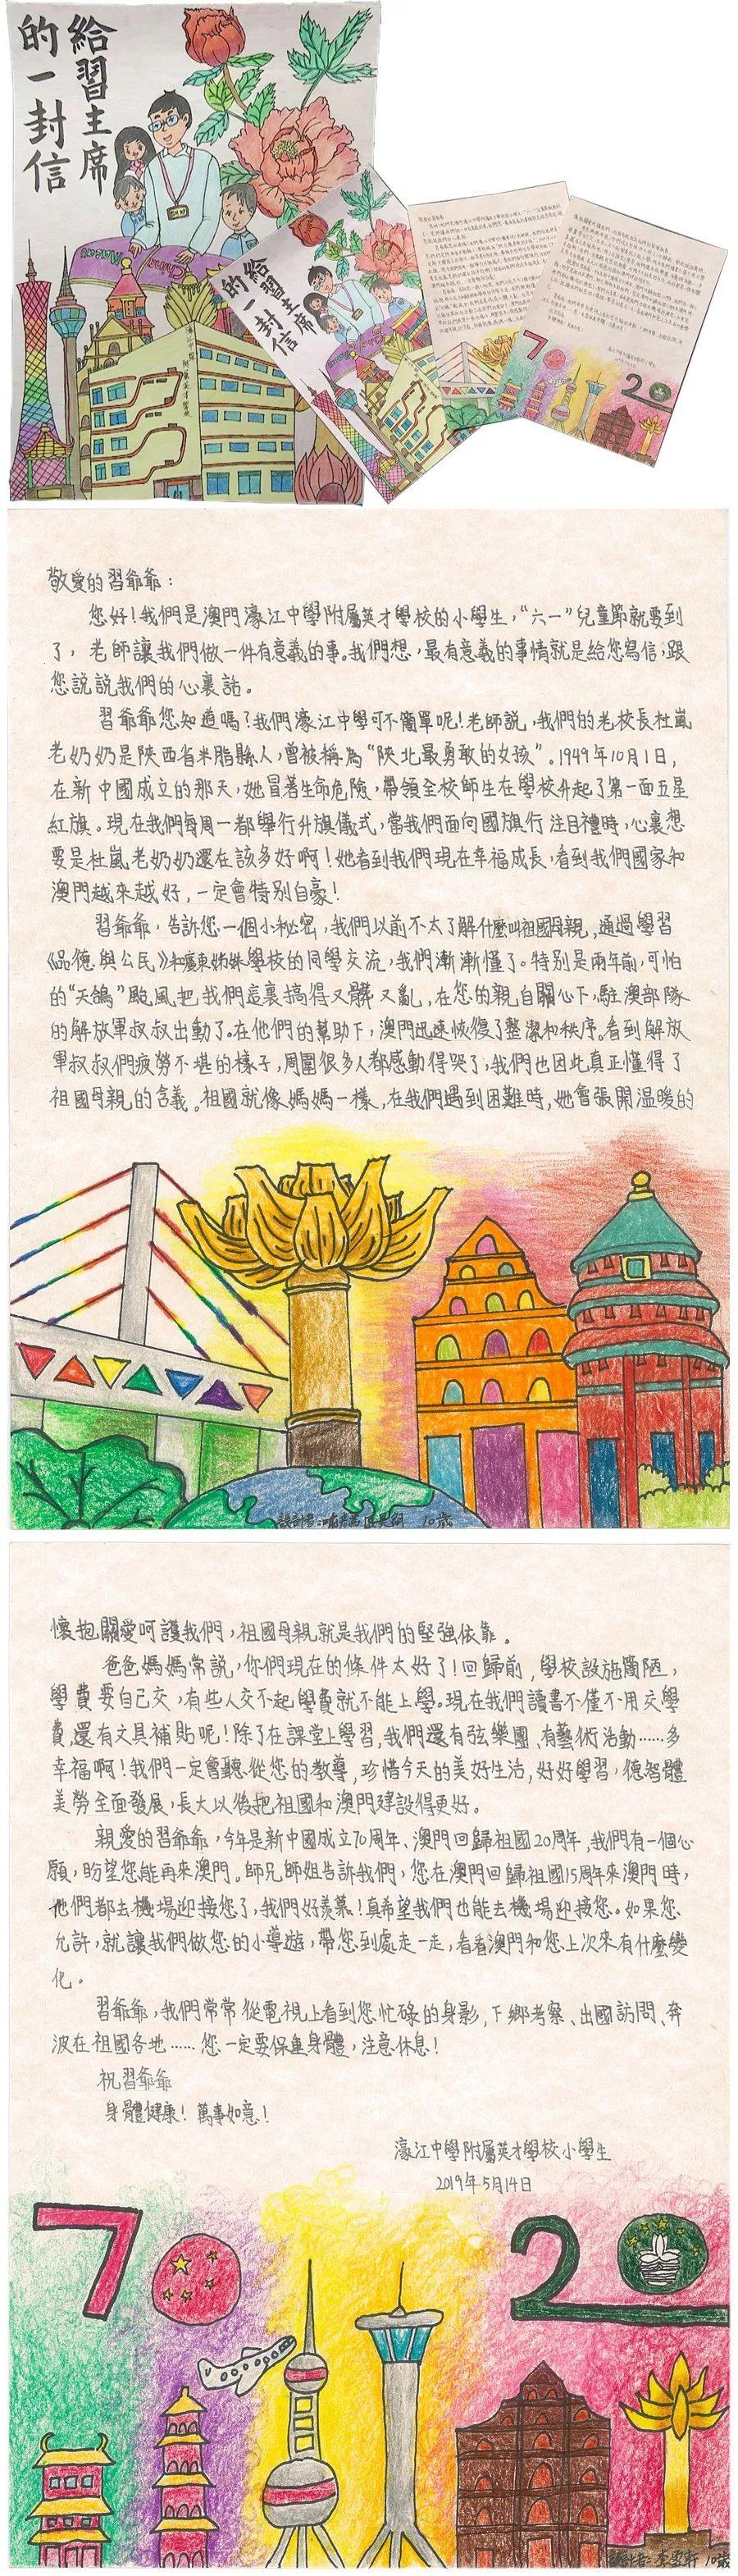 給習主席
的一封信
敬愛的習爺爺：
您好！我們是澳門濠江中學附屬英才學校的小學生，“六一”兒童節就要到
了，老師讓我們做一件有意義的事。我們想，最有意義的事情就是給您寫信，跟
您說說我們的心裏話。
習爺爺您知道嗎？我們濠江中學可不簡單呢！老師說，我們的老校長杜嵐
老奶奶是陝西省米脂縣人，曾被稱為“陝北最勇敢的女孩”。1949年10月1日，
在新中國成立的那天，她冒著生命危險，帶領全校師生在學校升起了第一面五星
紅旗。現在我們每周一都舉行升旗儀式，當我們面向國旗行注目禮時，心裏想
要是杜嵐老奶奶還在該多好啊！她看到我們現在幸福成長，看到我們國家和
澳門越來越好，一定會特別自豪！
習爺爺，告訴您一個小秘密，我們以前不太了解什麼叫祖國母親，通過學習
《品德與公民》和廣東姊妹學校的同學交流，我們漸漸懂了。特別是兩年前，可怕
的“天鴿”颱風把我們這裏搞得又髒又亂，在您的親自關心下，駐澳部隊
的解放軍叔叔出動了。在他們的幫助下，澳門迅速恢復了整潔和秩序。看到解放
軍叔叔們疲勞不堪的樣子，周圍很多人都感動得哭了，我們也因此真正懂得了
祖國母親的含義。祖國就像媽媽一樣，在我們遇到困難時，她會張開溫暖的
10歲
懷抱關愛呵護我們，祖國母親就是我們的堅強依靠。
爸爸媽媽常說，你們現在的條件太好了！回歸前，學校設施簡陋，
學費要自己交，有些人交不起學費就不能上學。現在我們讀書不僅不用交學
費，還有文具補貼呢！除了在課堂上學習，我們還有弦樂團、有藝術活動……多
幸福啊！我們一定會聽從您的教導，珍惜今天的美好生活，好好學習，德智體
美勞全面發展，長大以後把祖國和澳門建設得更好。
親愛的習爺爺，今年是新中國成立70周年、澳門回歸祖國20周年，我們有一個心
願，盼望您能再來澳門。師兄師姐告訴我們，您在澳門回歸祖國15周年來澳門時，
他們都去機場迎接您了，我們好羨慕！真希望我們也能去機場迎接您。如果您
允許，就讓我們做您的小導遊，帶您到處走一走，看看澳門和您上次來有什麼變
化。
習爺爺，我們常常從電視上看到您忙碌的身影，下鄉考察、出國訪問、奔
波在祖國各地……您一定要保重身體，注意休息！
祝習爺爺
身體健康！萬事如意！
濠江中學附屬英才學校小學生
2019年5月14日
70 20
10歲